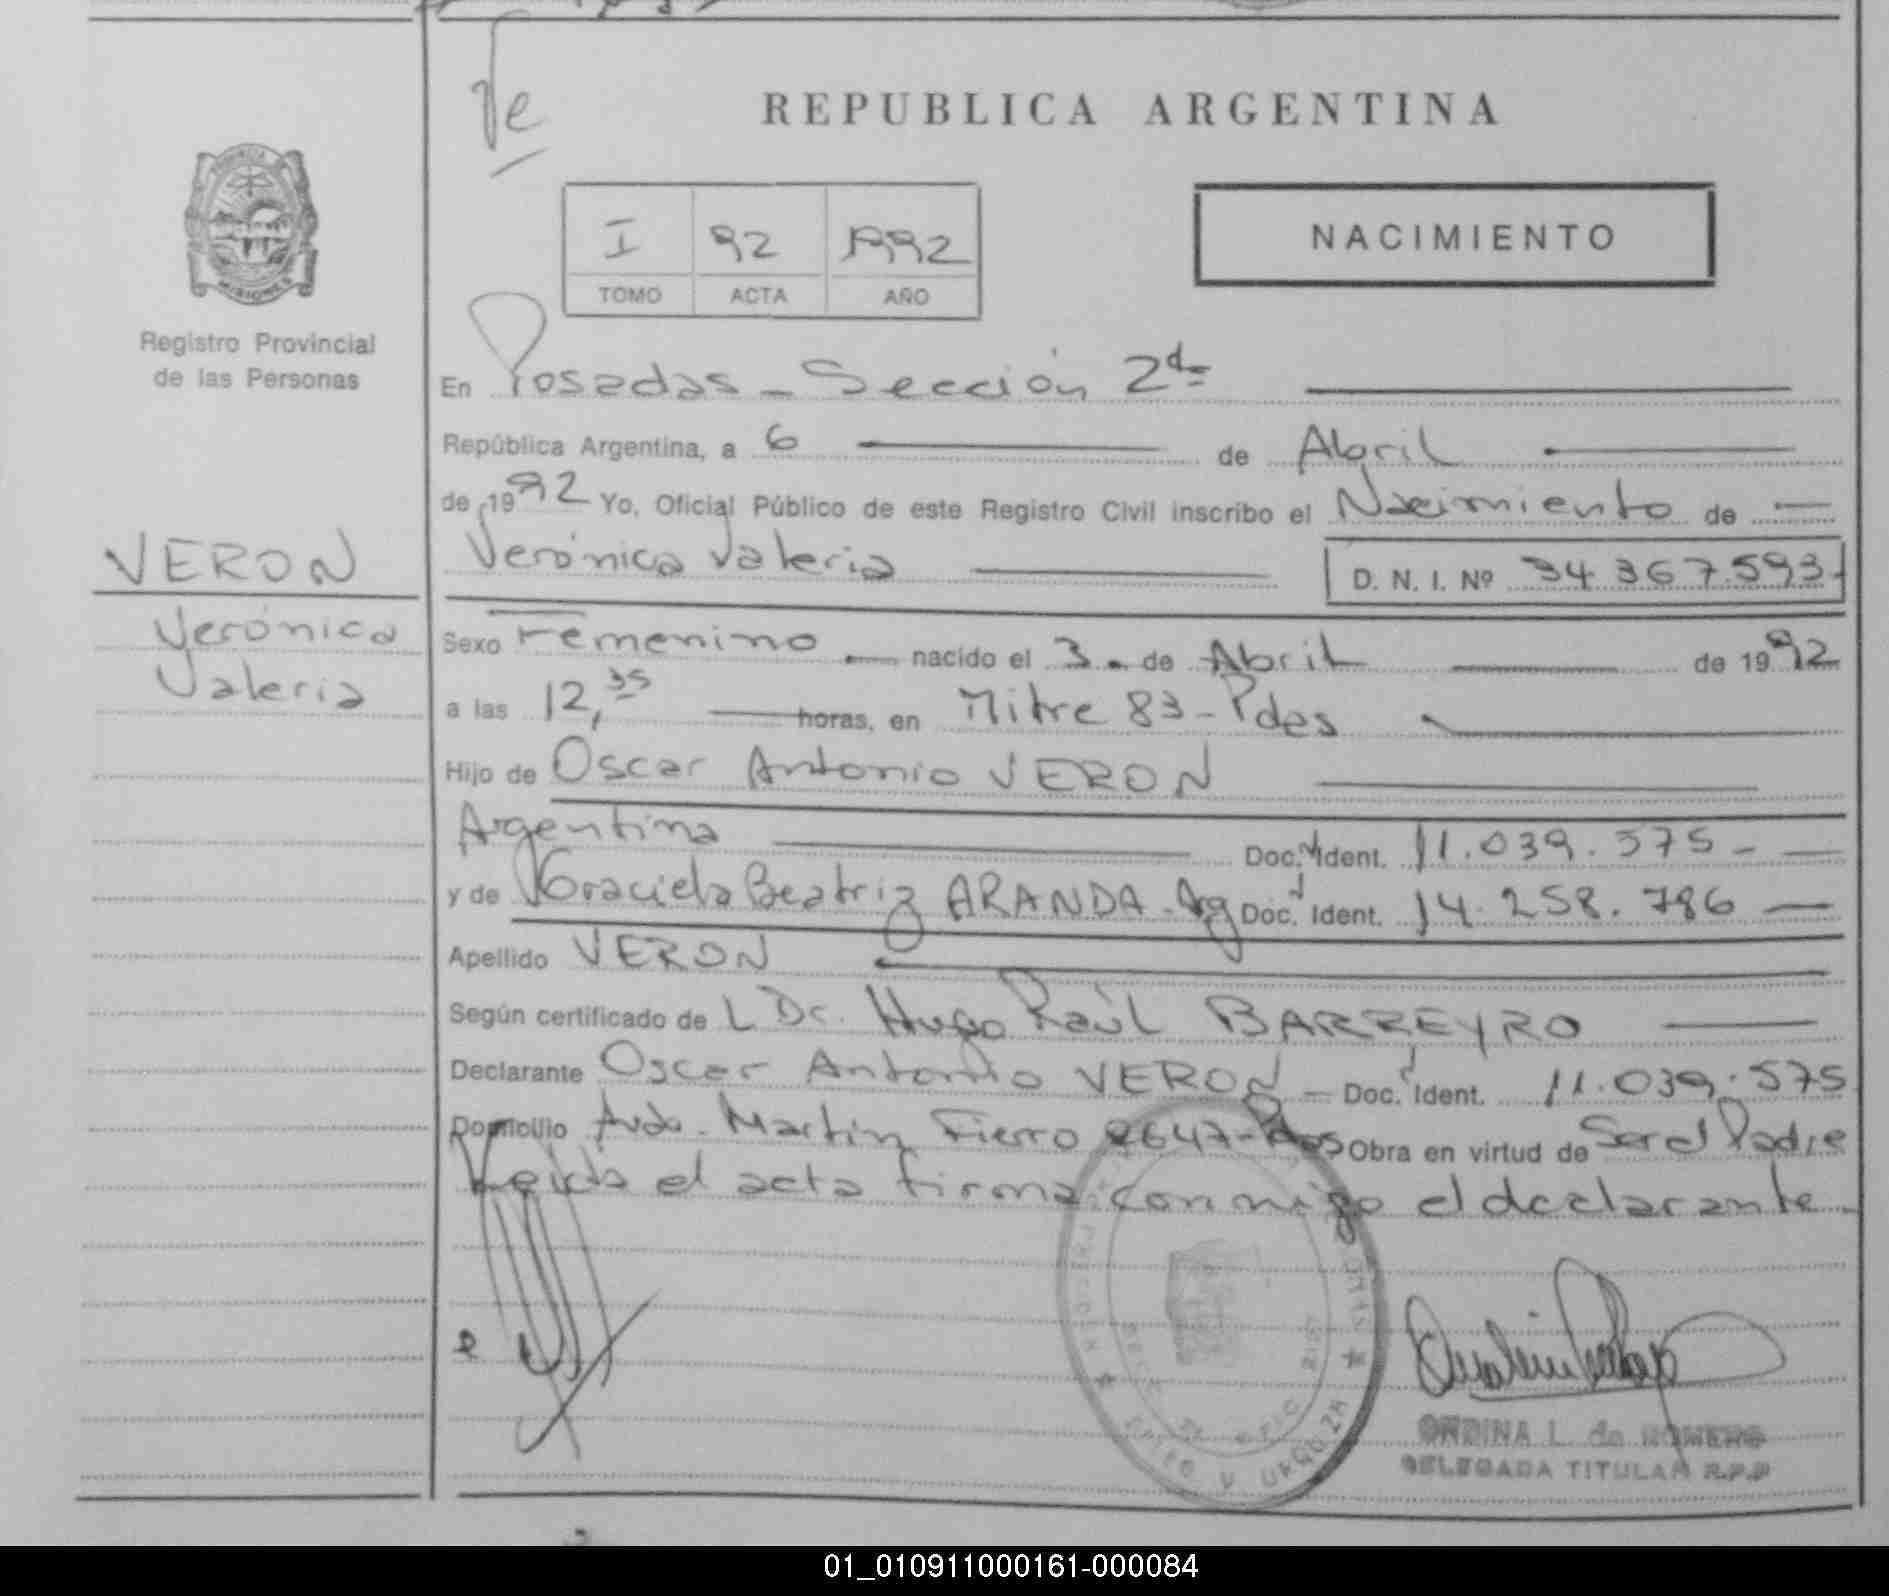 Ve
REPUBLICA ARGENTINA
I 92 1992
TOMO ACTA AÑO
NACIMIENTO
PROVINCIA DE
MISIONES
Registro Provincial
de las Personas
En Posadas - Sección 2da
República Argentina, a 6 de Abril
de 1992 Yo, Oficial Público de este Registro Civil inscribo el Nacimiento de
Verónica Valeria D. N. I. Nº 34 367.593-
VERON
Verónica
Valeria
Sexo Femenino nacido el 3 de Abril de 1992
a las 12,35 horas, en Mitre 83 - Pdas
Hijo de Oscar Antonio VERON
Argentina Doc. Ident. 11.039.575 -
y de Graciela Beatriz ARANDA - Arg Doc. Ident. 14.258.786
Apellido VERON
Según certificado de L Dr. Hugo Raúl BARREYRO
Declarante Oscar Antonio VERON - Doc. Ident. 11.039.575
Domicilio Avda. Martín Fierro 2647 - Pdas Obra en virtud de Ser el Padre
Leida el acta firma conmigo el declarante
URQUIZA
ONDINA L. de ROMERO
DELEGADA TITULAR R.P.P
01_010911000161-000084